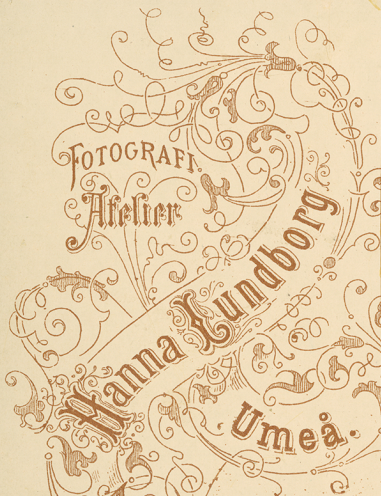 FOTOGRAFI.
Atelier
Hanna Lundborg
Umeå.